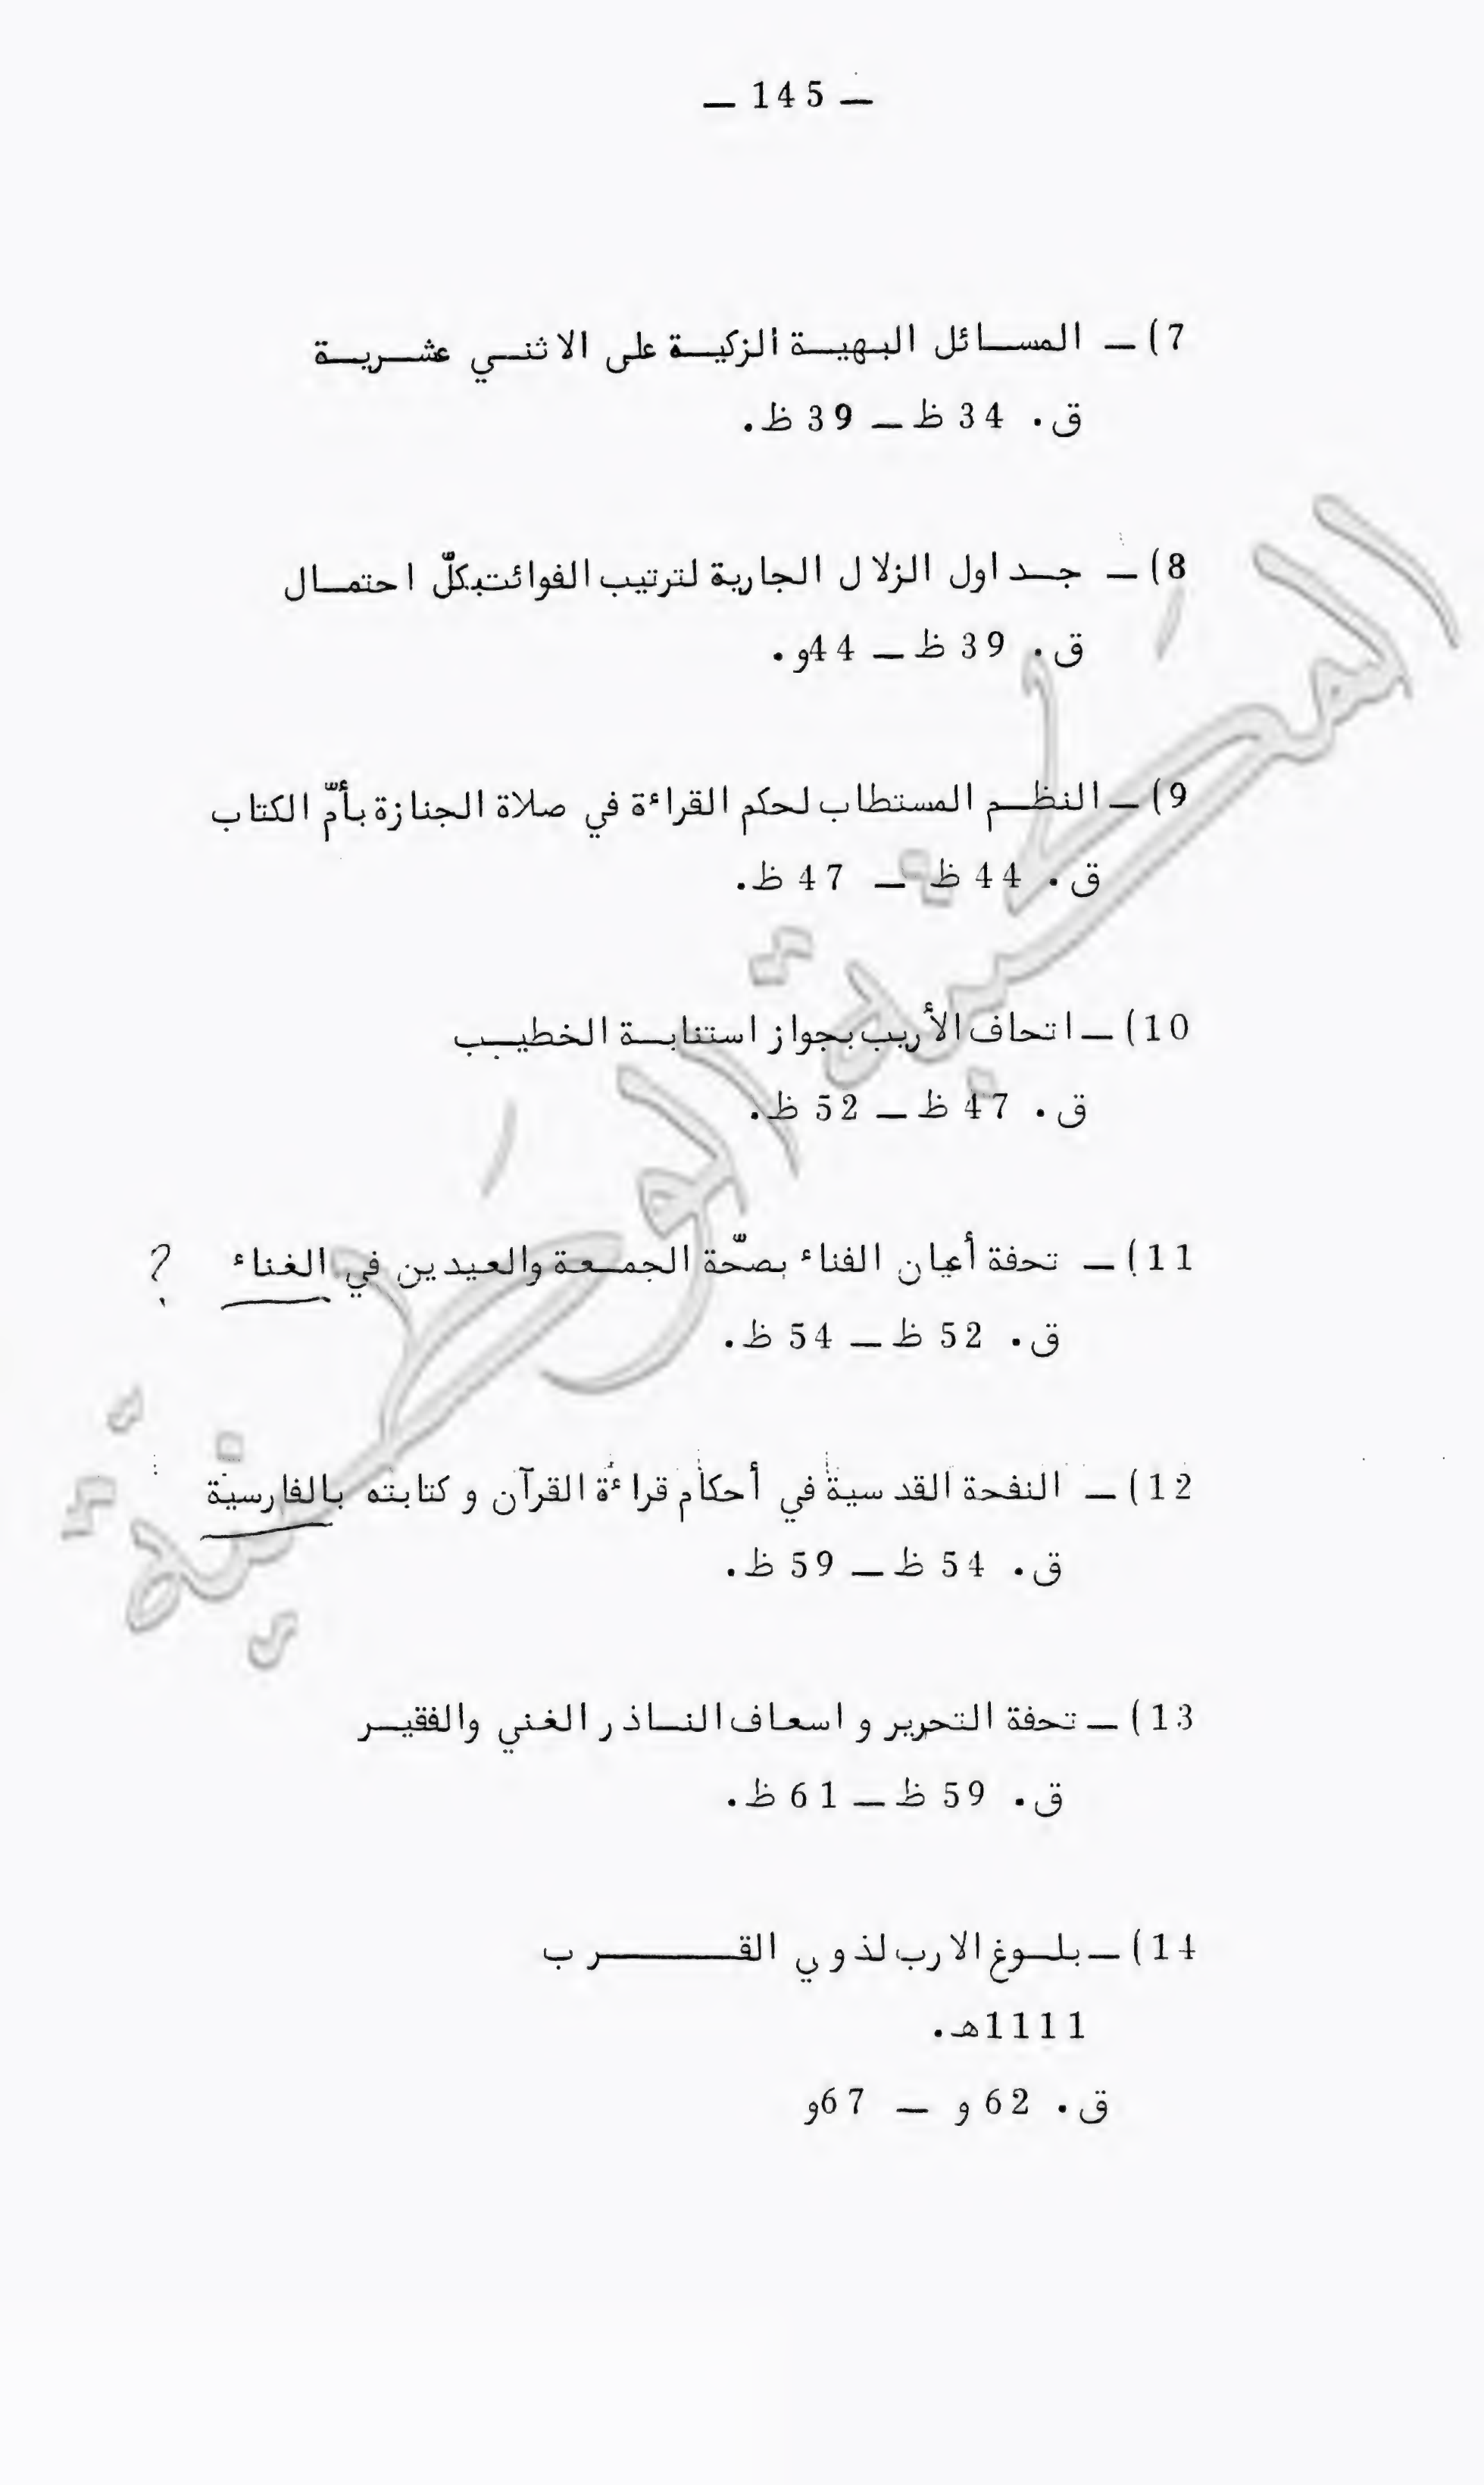 — 145 —
7) — المسائل البهية الزكية على الاثني عشرية
ق. 34 ظ — 39 ظ.
8) — جداول الزلال الجارية لترتيب الفوائت بكلّ احتمال
ق. 39 ظ — 44و.
9) — النظم المستطاب لحكم القراءة في صلاة الجنازة بأمّ الكتاب
ق. 44 ظ — 47 ظ.
10) — اتحاف الأريب بجواز استنابة الخطيب
ق. 47 ظ — 52 ظ.
11) — تحفة أعيان الفناء بصحّة الجمعة والعيدين في الغناء ?
ق. 52 ظ — 54 ظ.
12) — النفحة القدسية في أحكام قراءة القرآن و كتابته بالفارسية
ق. 54 ظ — 59 ظ.
13) — تحفة التحرير و اسعاف الناذر الغني والفقير
ق. 59 ظ — 61 ظ.
14) — بلوغ الارب لذوي القرب
1111هـ.
ق. 62 و — 67و
المكتبة الوطنية